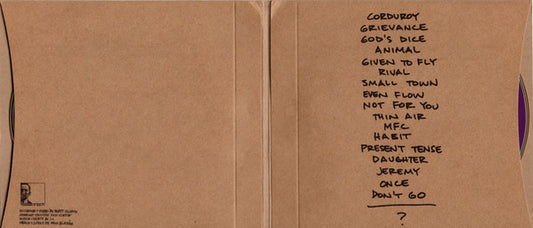 CORDUROY
GRIEVANCE
GOD'S DICE
ANIMAL
GIVEN TO FLY
RIVAL
SMALL TOWN
EVEN FLOW
NOT FOR YOU
THIN AIR
MFC
HABIT
PRESENT TENSE
DAUGHTER
JEREMY
ONCE
DON'T GO
?